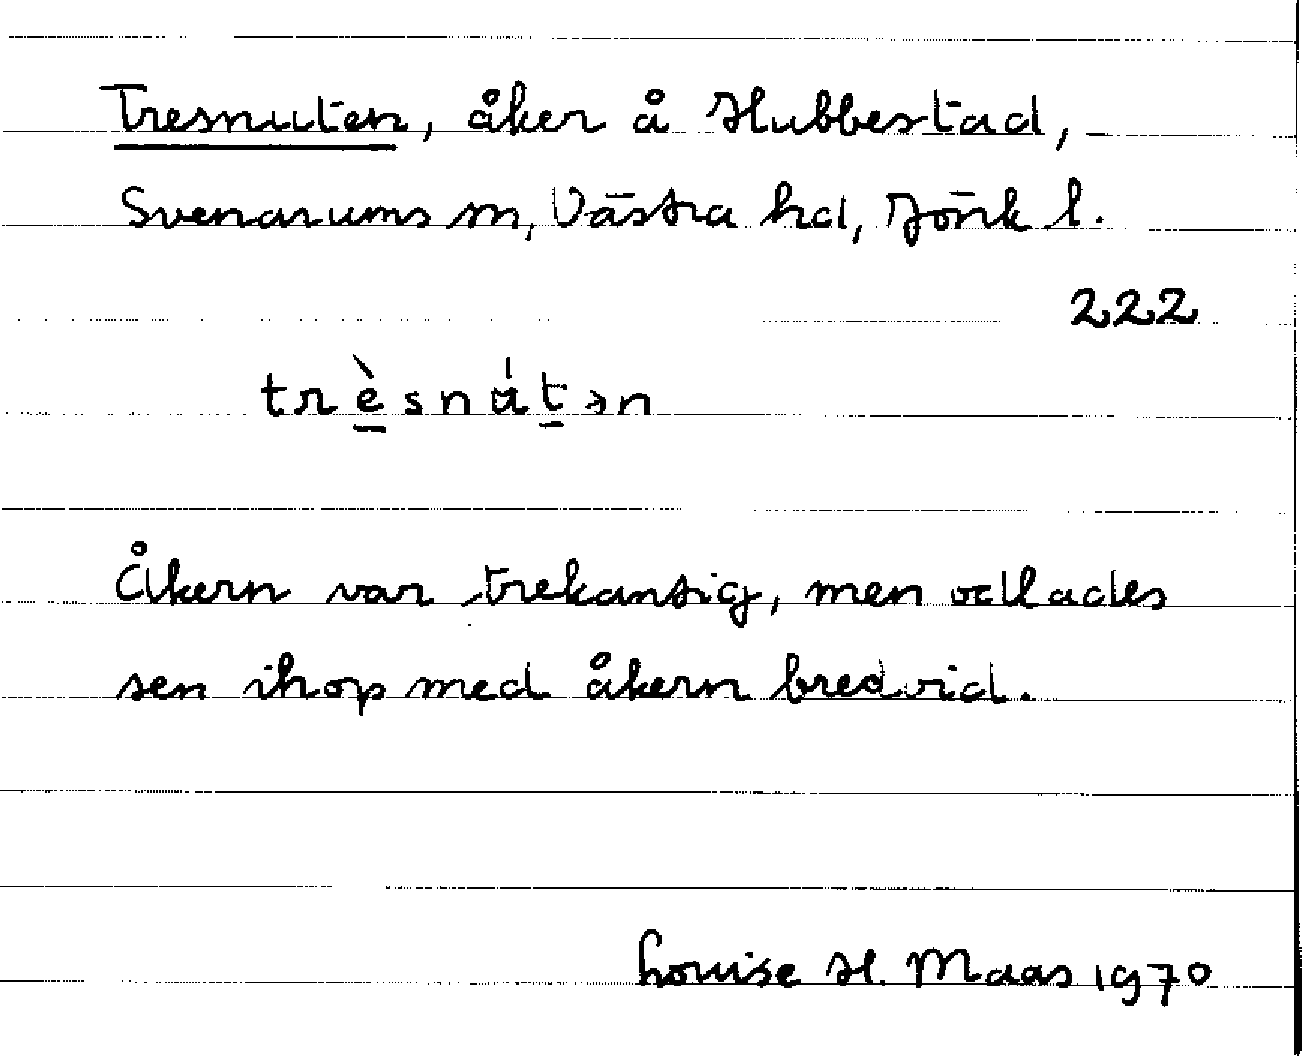 Tresnuten, åker å Hubbestad,
Svenarums sn, Västra hd, Jönk l.
222
trèsnútən
Åkern var trekantig, men odlades
sen ihop med åkern bredvid.
Louise H. Maas 1970